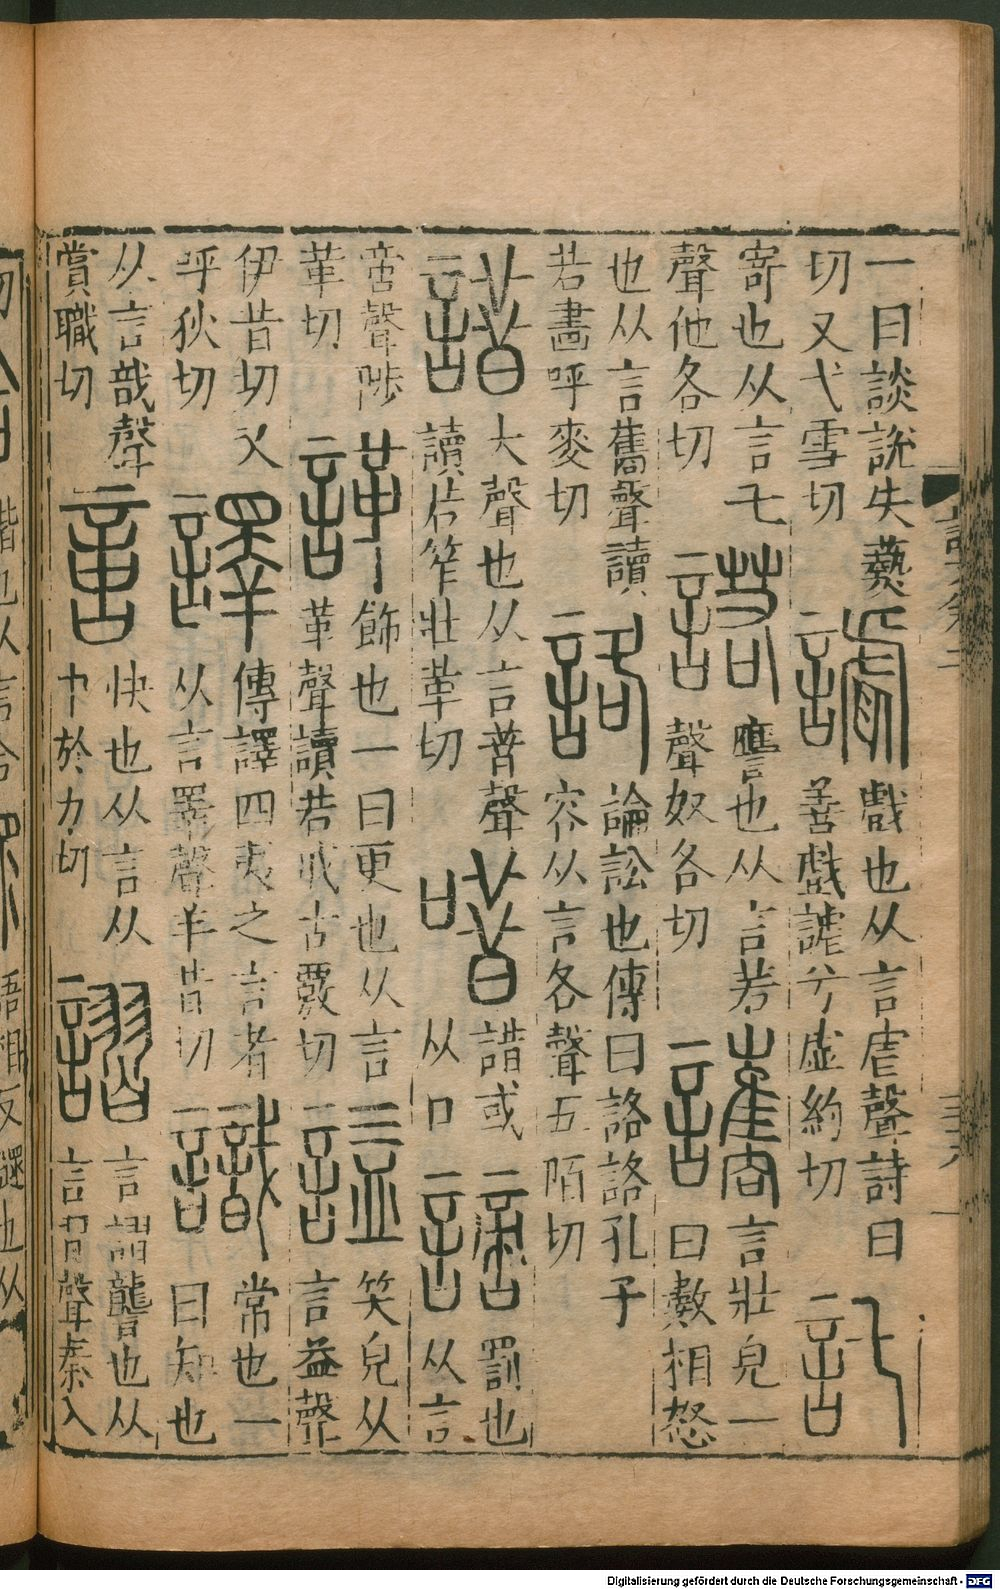 一曰談說失爇切又弋雪切 謔 戲也从言虐聲詩曰善戲謔兮虛約切 託
寄也从言乇聲他各切 諾 譍也从言若聲奴各切 讗 言壯皃一曰數相怒
也从言巂聲讀若畫呼麥切 詻 論訟也傳曰詻詻孔子容从言各聲五陌切
諎 大聲也从言昔聲讀若笮壯革切 唶 諎或从口 謫 罰也从言
啻聲陟革切 諽 飾也一曰更也从言革聲讀若戒古覈切 謚 笑皃从言益聲
伊昔切又呼狄切 譯 傳譯四夷之言者从言睪聲羊昔切 識 常也一曰知也
从言戠聲賞職切 𢡃 快也从言从中於力切 謵 言謵讋也从言習聲秦入